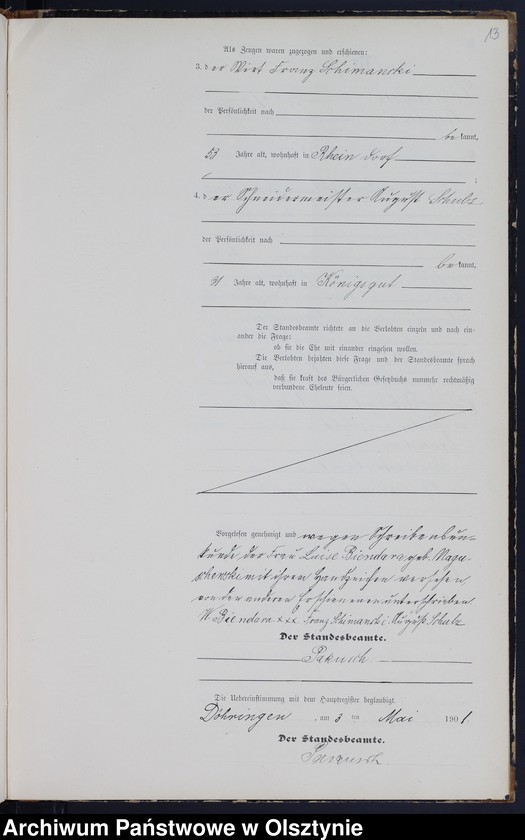 13
Als Zeugen waren zugezogen und erschienen:
3. der Wirt Franz Schimanski
der Persönlichkeit nach
be kannt,
53 Jahre alt, wohnhaft in Rheindorf
;
4. der Schneidermeister August Schulz
der Persönlichkeit nach
be kannt,
31 Jahre alt, wohnhaft in Königsgut
Der Standesbeamte richtete an die Verlobten einzeln und nach ein-
ander die Frage:
ob sie die Ehe mit einander eingehen wollen.
Die Verlobten bejahten diese Frage und der Standesbeamte sprach
hierauf aus,
daß sie kraft des Bürgerlichen Gesetzbuchs nunmehr rechtmäßig
verbundene Eheleute seien.
Vorgelesen genehmigt und wegen Schreibensun-
kunde der Frau Luise Biendara geb.
mit ihrem Handzeichen versehen,
von den anderen Erschienenen unterschrieben
W Biendara. xxx. Franz Schimanski. August Schulz
Der Standesbeamte.
Die Uebereinstimmung mit dem Hauptregister beglaubigt.
Döhringen, am 3 ten Mai 1901
Der Standesbeamte.
Archiwum Państwowe w Olsztynie